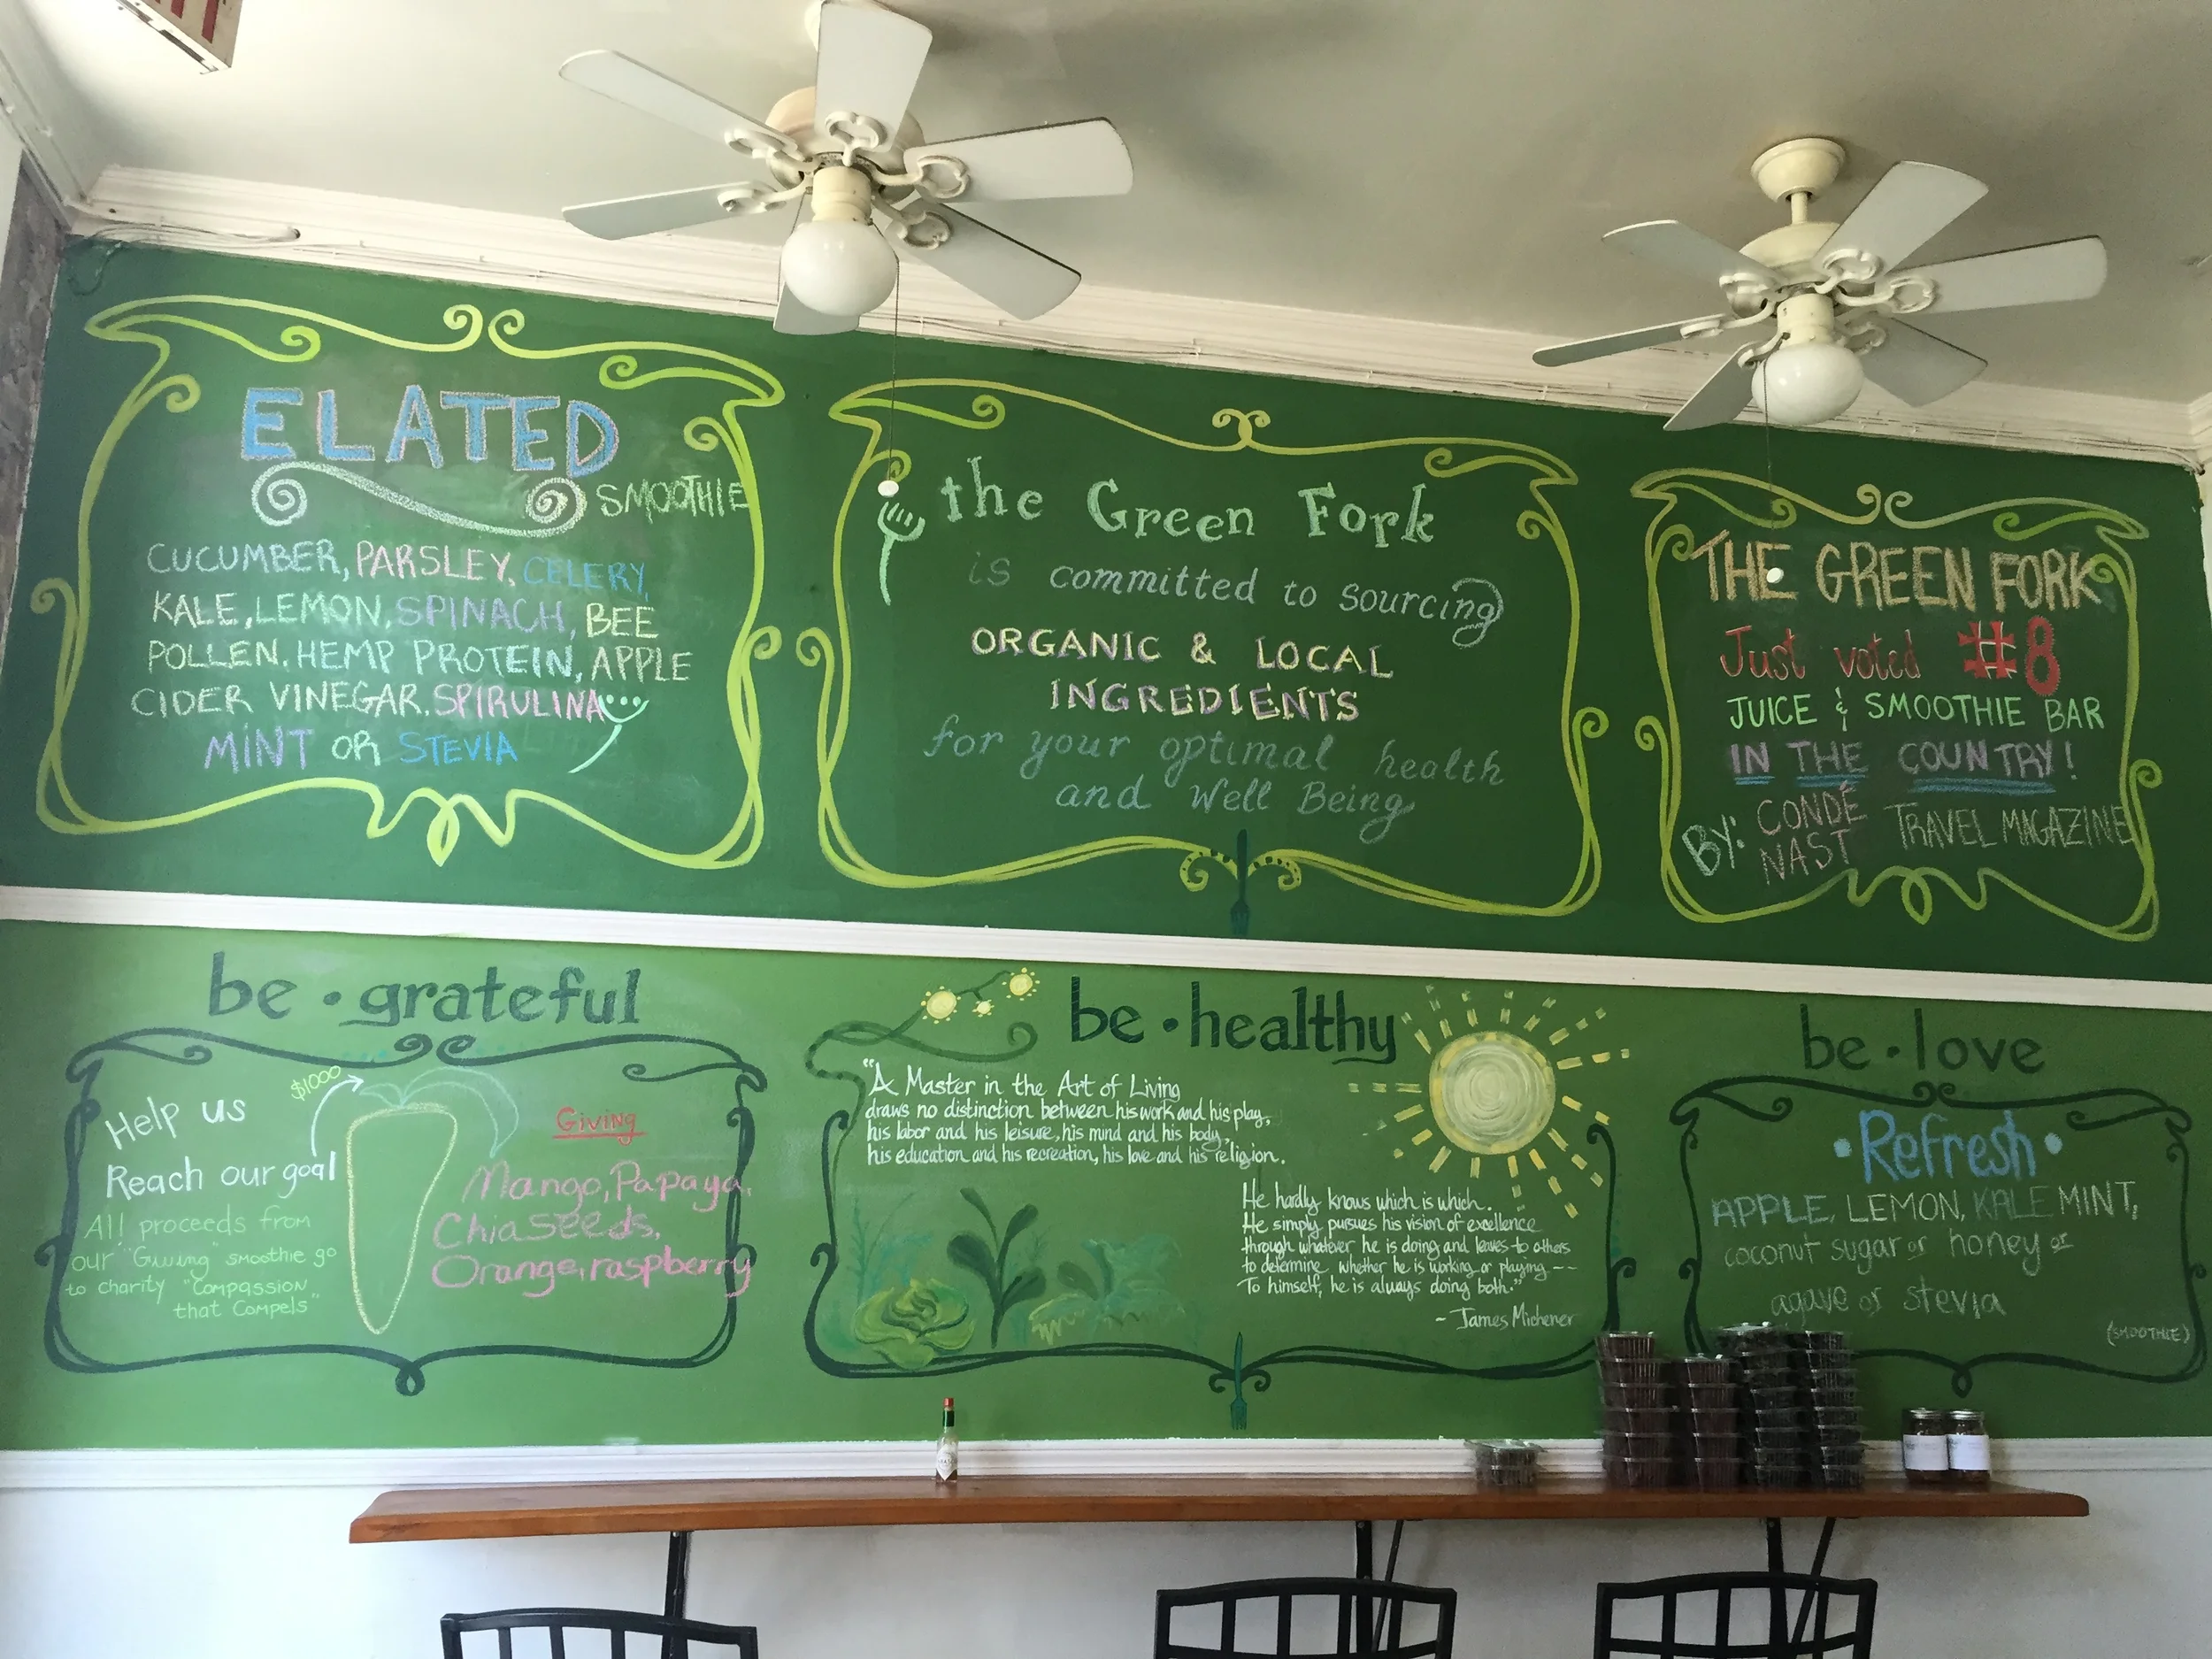 ELATED
SMOOTHIE
CUCUMBER, PARSLEY, CELERY,
KALE, LEMON, SPINACH, BEE
POLLEN, HEMP PROTEIN, APPLE
CIDER VINEGAR, SPIRULINA
MINT OR STEVIA
the Green Fork
is committed to sourcing
ORGANIC & LOCAL
INGREDIENTS
for your optimal health
and Well Being
THE GREEN FORK
Just voted #8
JUICE & SMOOTHIE BAR
IN THE COUNTRY!
BY: CONDÉ NAST TRAVEL MAGAZINE
be • grateful
$1000
Help us
Reach our goal
All proceeds from
our "Giving" smoothie go
to charity "Compassion
that Compels"
Giving
Mango, Papaya,
Chia seeds,
Orange, raspberry
be • healthy
"A Master in the Art of Living
draws no distinction between his work and his play,
his labor and his leisure, his mind and his body,
his education and his recreation, his love and his religion.
He hardly knows which is which.
He simply pursues his vision of excellence
through whatever he is doing and leaves to others
to determine whether he is working or playing --
To himself, he is always doing both."
~ James Michener
be • love
• Refresh •
APPLE, LEMON, KALE MINT,
coconut sugar or honey or
agave or stevia
(SMOOTHIE)